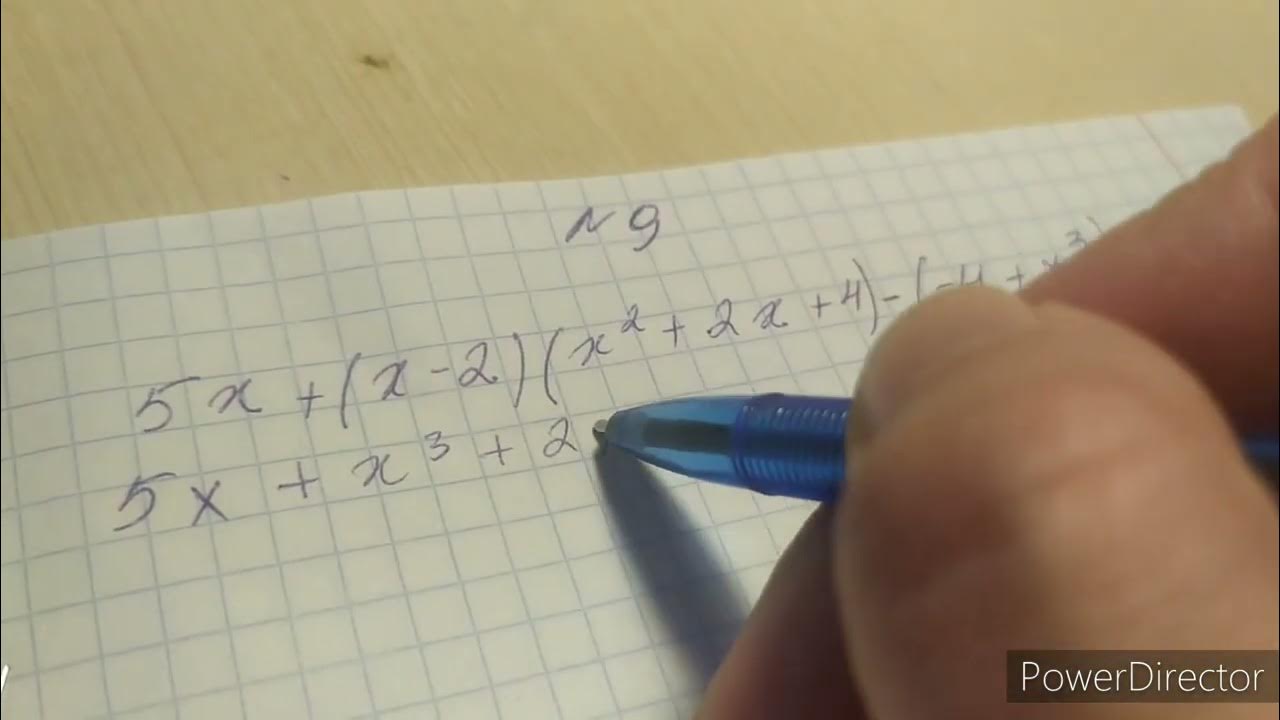 N 9
5x + (x - 2)(x² + 2x + 4) - (-4 + x³)
5x + x³ + 2
PowerDirector